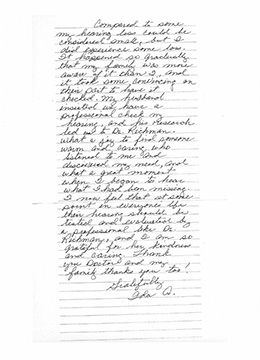 Compared to some
my hearing loss could be
considered small, but I
did experience some loss.
It happened so gradually
that my family was more
aware of it than I, and
it took some convincing on
their part to have it
checked. My husband
insisted we have a
professional check my
hearing, and his research
led us to Dr. Richman.
What a joy to find someone
warm and caring who
listened to me and
discovered my need, and
what a great moment
when I began to hear
what I had been missing.
I now feel that at some
point in everyone's life
their hearing should be
tested and evaluated by
a professional like Dr.
Richman, and I am so
grateful for her kindness
and caring. Thank
you Doctor and my
family thanks you too!
Gratefully
Ada Q.